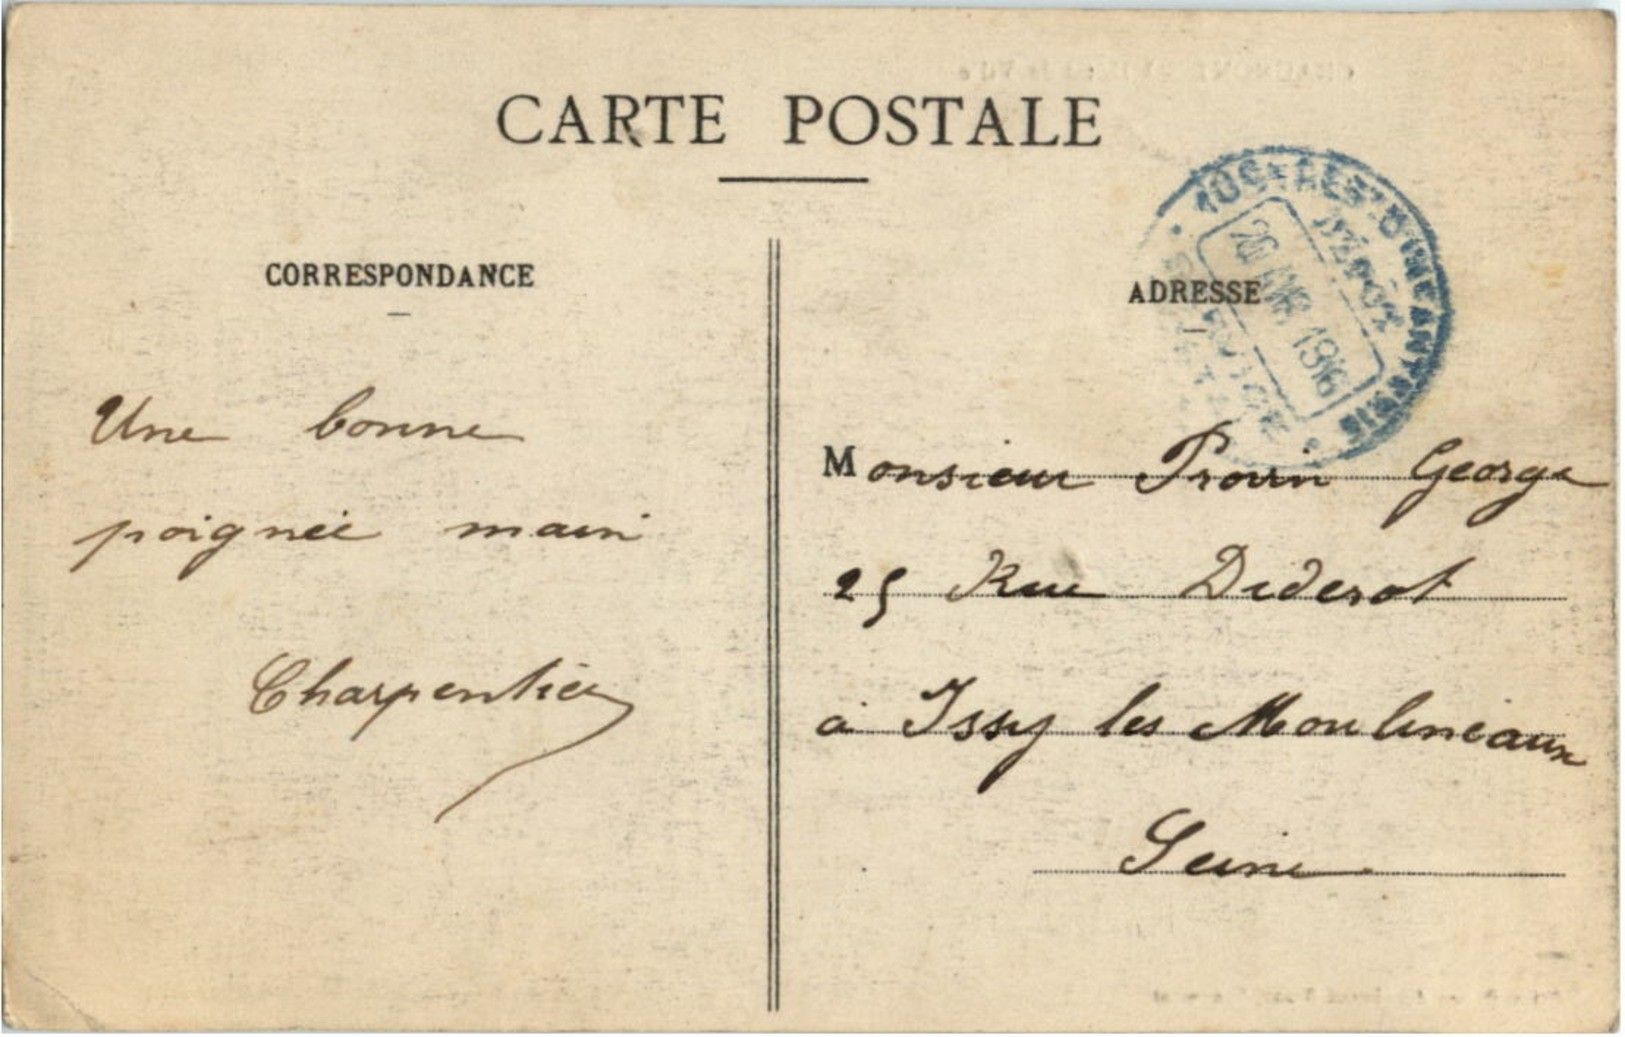 CARTE POSTALE
CORRESPONDANCE
Une bonne
poignée main
Charpentier
ADRESSE
Monsieur Provin George
25 Rue Diderot
à Issy les Moulineaux
Seine
D'INFANTERIE
DÉPÔT
1916